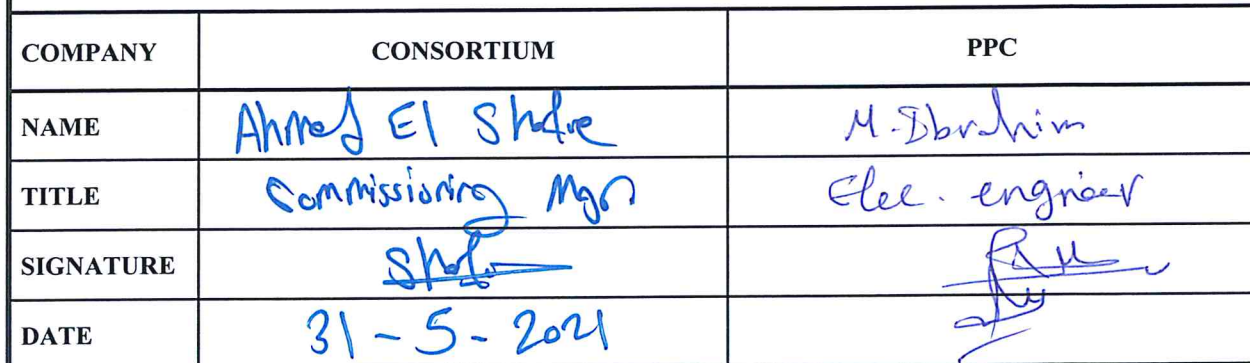 COMPANY CONSORTIUM PPC
NAME Ahmed El M. Ibrahim
TITLE Commissioning Mgr Elec. engineer
SIGNATURE
DATE 31 - 5 - 2021